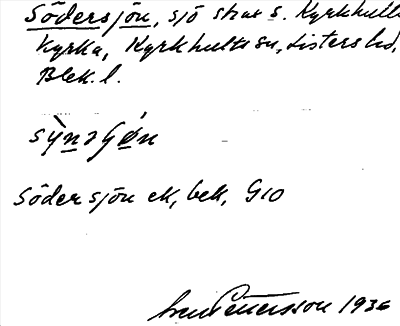 Södersjön, sjö strax s. Kyrkhults
kyrka, Kyrkhults sn, Listers hd,
Blek. l.
Södersjön ek, bek, G10
Pettersson 1936